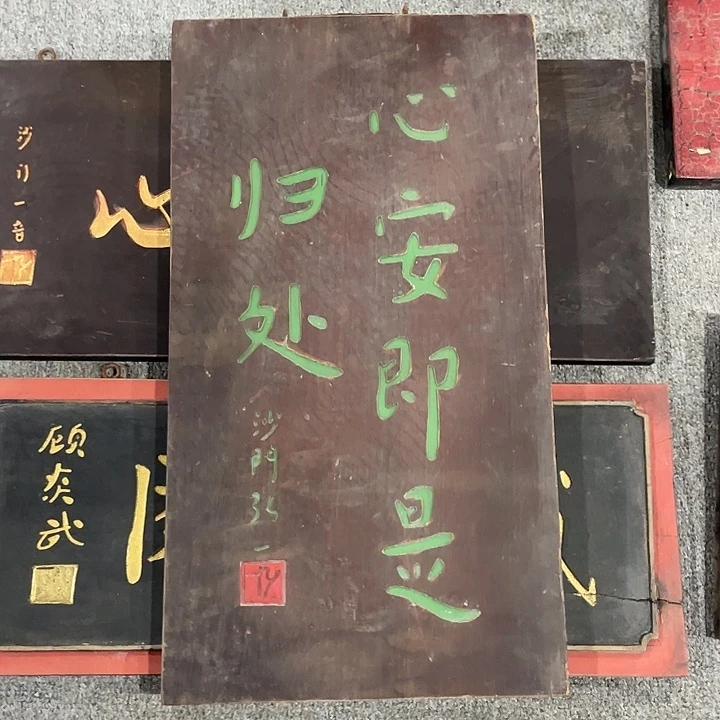 心安即是
归处
沙門弘一
沙门一音
心
顾炎武